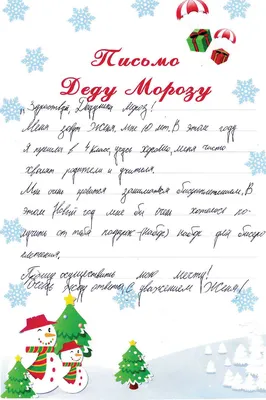 Письмо
Деду Морозу
„Здравствуй, Дедушка Мороз!
Меня зовут Женя, мне 10 лет. В этом году
я пришла в 4 класс, учусь хорошо, меня часто
хвалят родители и учителя.
Мне очень нравится заниматься бисероплетением. В
этом Новый год мне бы очень хотелось по-
лучить от тебя подарок (набор) набор для бисеро
плетения.
Прошу осуществить мою мечту!
Очень жду ответа. С уважением Женя!